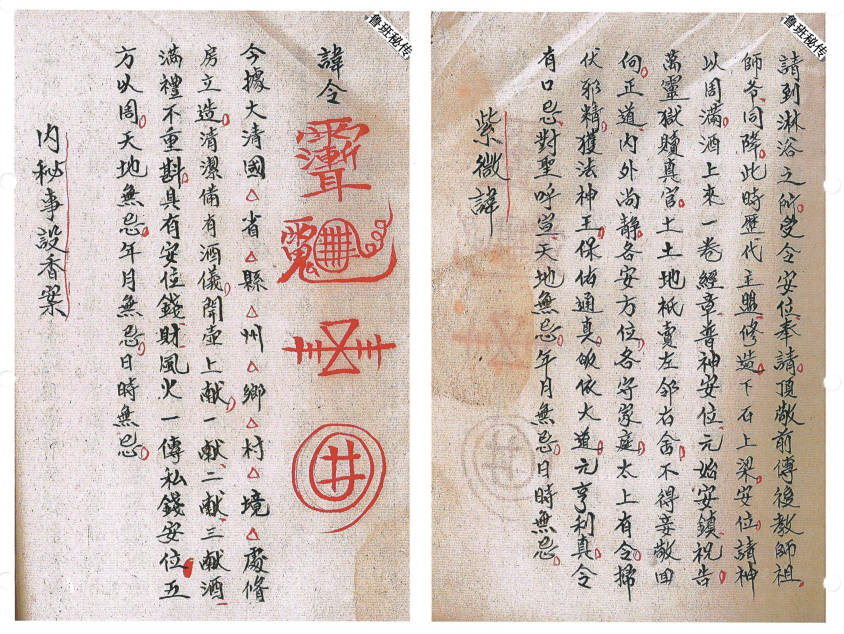 鲁班秘传
請到淋浴之所受令安位奉請頂敬前傳後教師祖
師爷同降此時歷代主盟修造下石上梁安位請神
以周满酒上來一卷經章普神安位元始安鎮祝告
萬靈獄真官土土地祇左邻右舍不得妄回
向正道内外尚静各安方位各守家庭太上有令掃
伏邪精獲法神王保佑通真皈依大道元亨利真令
有口忌對聖呼天地無忌年月無忌日時無忌
紫微諱
鲁班秘传
諱令
井
今據大清國△省△縣△州△鄉△村△境△處脩
房立造清潔俻有酒儀開壺上献一献二献三献酒
满禮不重斟具有安位錢財風火一傳私錢安位五
方以周天地無忌年月無忌日時無忌
内秘事設香案